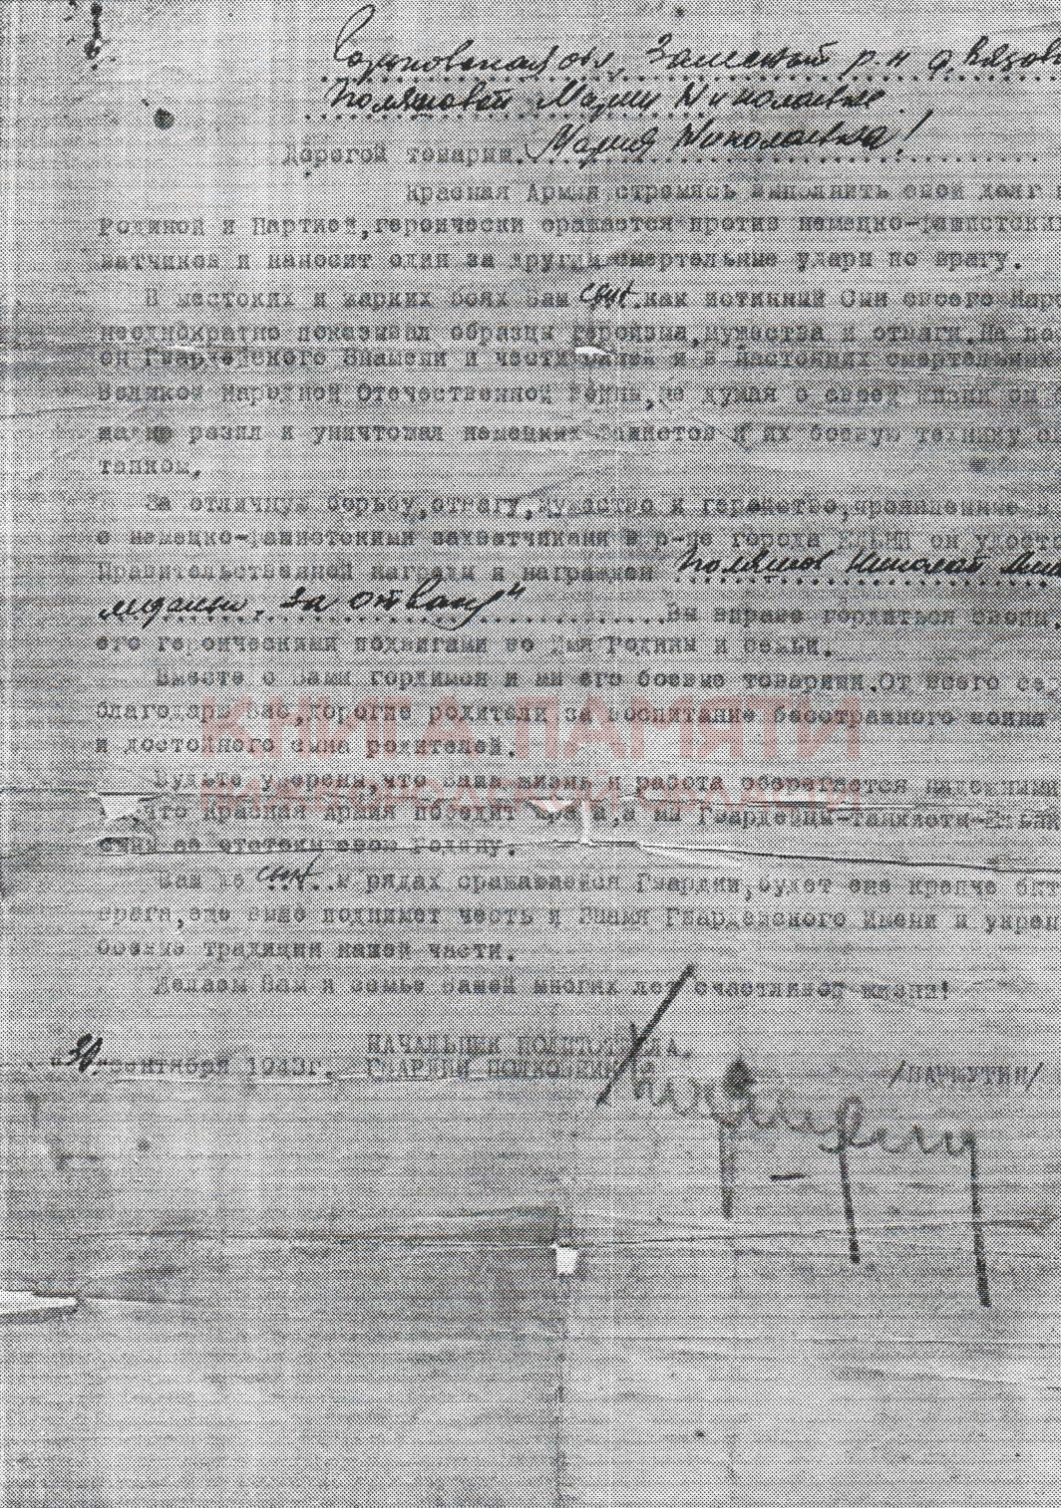 обл, р-н д. Вязов
Марии Николаевне
Дорогой товарищ. Мария Николаевна!
Красная Армия, стремясь выполнить свой долг
Родиной и Партией, героически сражается против немецко-фашистски
ватчиков и наносит один за другим смертельные удары по врагу.
В жестоких и жарких боях Ваш сын. как истинный Сын своего Нар
неоднократно показывал образцы героизма, мужества и отваги. На
он Гвардейского Знамени и чести и в настоящих смертельных
Великой Народной Отечественной Войны, не думая о своей жизни он
разил и уничтожал немецких фашистов и их боевую технику
танком.
За отличную борьбу, отвагу, мужество и геройство, проявленные
с немецко-фашистскими захватчиками в р-не города ЕЛЬНИ он удост
Правительственной награды и награжден Поляшов Николай
медалью "За отвагу" Вы вправе гордиться своим.
его героическими подвигами во Имя Родины и семьи.
Вместе с Вами гордимся и мы его боевые товарищи. От всего се
благодарю Вас, дорогие родители за воспитание бесстрашного воина
и достойного сына родителей.
Будьте уверены, что Ваша жизнь и работа оберегается надежными
что Красная Армия победит врага, а мы Гвардейцы-танкисты-Ельн
свою Родину.
Ваш же сын. в рядах сражающейся Гвардии, будет еще крепче бить
врага, еще выше поднимет честь и Знамя Гвардейского Имени и укреп
боевые традиции нашей части.
Желаем Вам и семье Вашей многих лет счастливой жизни!
НАЧАЛЬНИК ПОЛИТОТДЕЛА.
"30" сентября 1943г. ГВАРДИИ ПОЛКОВНИК
КНИГА ПАМЯТИ